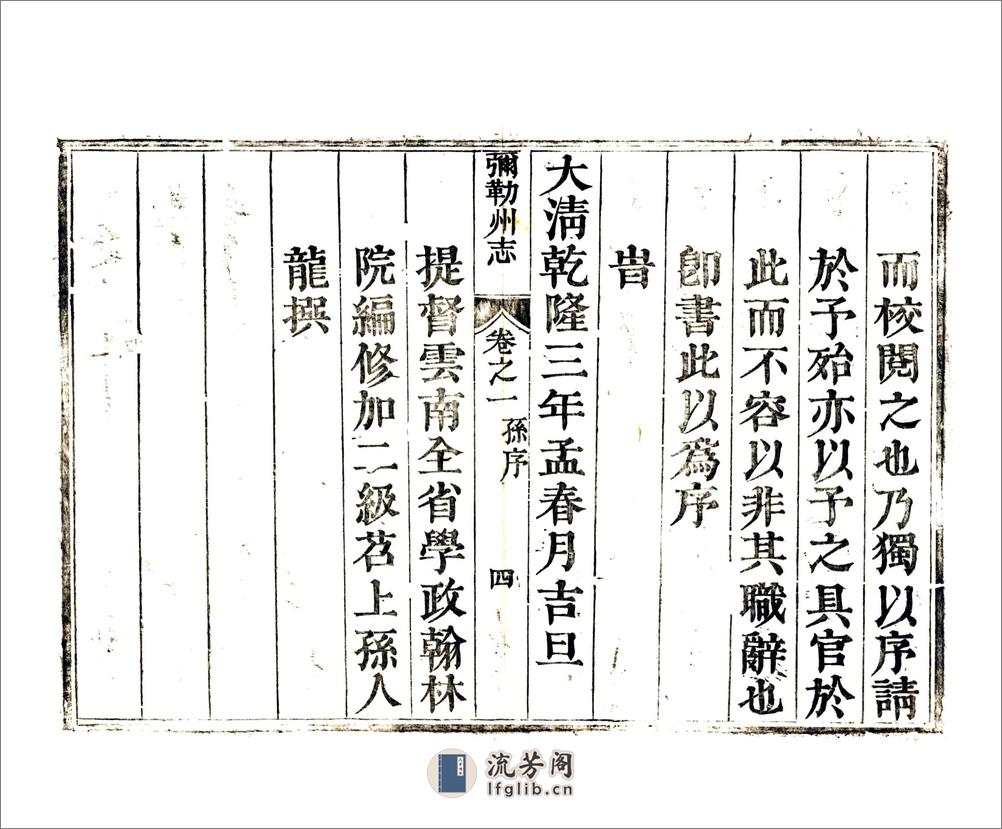 而校閱之也乃獨以序請
於予殆亦以予之具官於
此而不容以非其職辭也
卽書此以爲序
旹
大淸乾隆三年孟春月吉旦
彌勒州志
卷之一
孫序
四
提督雲南全省學政翰林
院編修加二級苕上孫人
龍撰
流芳阁
lfglib.cn